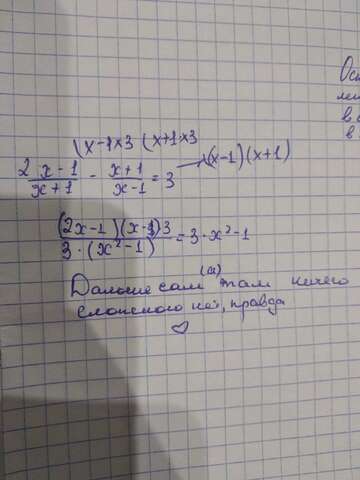 Ост
\(x-1×3 \(x+1×3
\(x-1)(x+1)
2x-1/x+1 - x+1/x-1 = 3
(2x-1)(x-1)3/3·(x²-1) = 3·x²-1
Дальше сам (а) там ничего
сложного нет, правда
♡